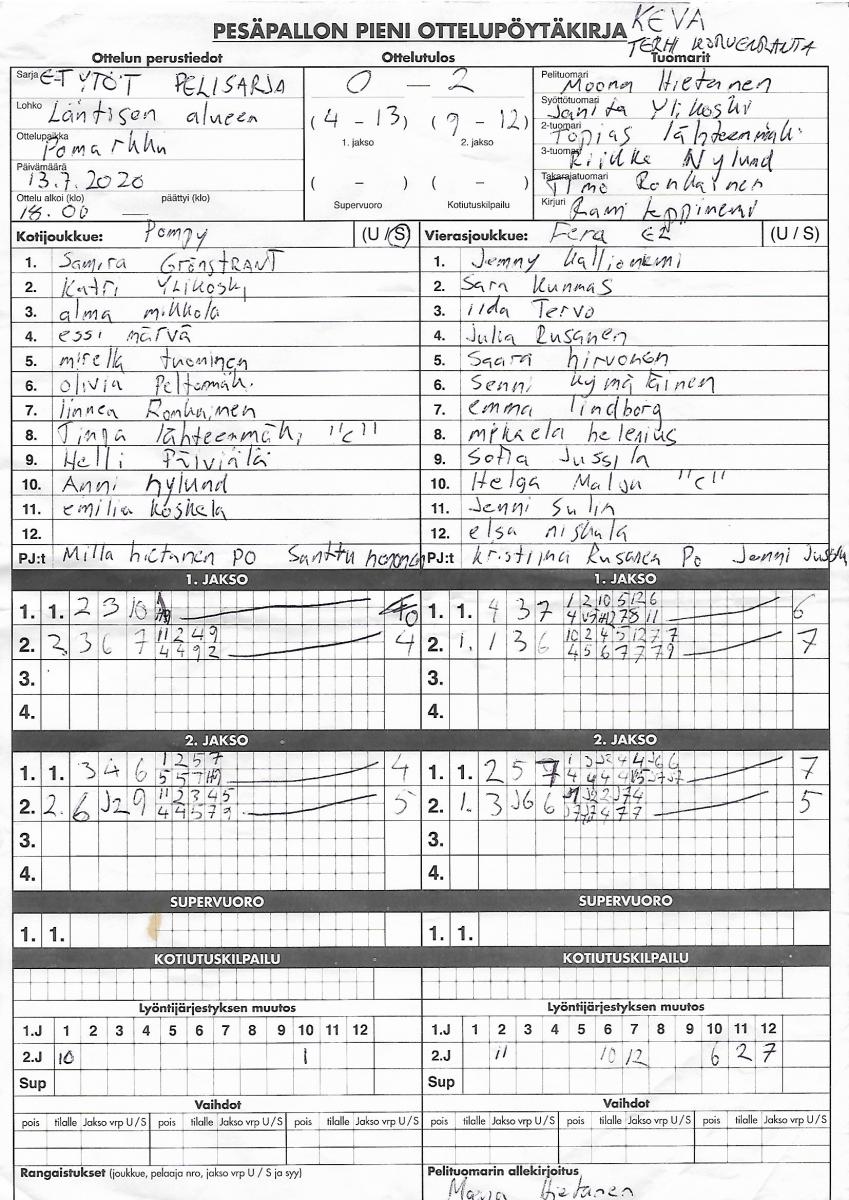 PESÄPALLON PIENI OTTELUPÖYTÄKIRJA KEVA
Ottelun perustiedot Ottelutulos Tuomarit
Sarja E-TYTÖT PELISARJA
Lohko Läntisen alueen
Ottelupaikka Pomarkku
Päivämäärä
13.7.2020
Ottelu alkoi (klo) päättyi (klo)
18.00 —
0 — 2
(4 - 13) (9 - 12)
1. jakso 2. jakso
( - ) ( - )
Supervuoro Kotiutuskilpailu
Pelituomari Moona Hietanen
Syöttötuomari Janita Ylikoski
2-tuomari Topias lähteenmäki
3-tuomari Riikka Nylund
Takarajatuomari Timo Ronkainen
Kirjuri Rami Leppiniemi
Kotijoukkue: Pompy (U / S)
1. Samira GrönSTRANT
2. Katri YLIKOSKi
3. alma mikkola
4. essi märvä
5. mirella tuominen
6. olivia Peltomäki
7. linnea Ronkainen
8. Tinja lähteenmäki "c"
9. Helli Päiviälä
10. Anni nylund
11. emilia koskela
12.
PJ:t Milla hietanen PO Santtu
Vierasjoukkue: Fera E2 (U / S)
1. Jemmy Kallioniemi
2. Sara Kunnas
3. iida Tervo
4. Julia Rusanen
5. Saara hirvonen
6. Senni kymäläinen
7. emma lindborg
8. mikaela helenius
9. Sofia Jussila
10. Helga Malju "c"
11. Jenni Sulin
12. elsa niskala
PJ:t kristiina Rusanen Po Jenni Jussila
1. JAKSO 1. JAKSO
1. 1. 2 3 10 0
2. 2. 3 6 7 11 2 4 9 4
4 4 9 2
3.
4.
1. 1. 4 3 7 1 2 10 5 12 6 6
2. 1. 1 3 6 10 2 4 5 12 7 7 7
4 5 6 7 7 7 9
3.
4.
2. JAKSO 2. JAKSO
1. 1. 3 4 6 1 2 5 7 4
2. 2. 6 J2 9 11 2 3 4 5 5
4 4 5 7 9
3.
4.
1. 1. 2 5 7 7
2. 1. 3 J6 6 5
3.
4.
SUPERVUORO SUPERVUORO
1. 1. 1. 1.
KOTIUTUSKILPAILU KOTIUTUSKILPAILU
Lyöntijärjestyksen muutos Lyöntijärjestyksen muutos
1.J 1 2 3 4 5 6 7 8 9 10 11 12
2.J 10 1
Sup
1.J 1 2 3 4 5 6 7 8 9 10 11 12
2.J 11 10 12 6 2 7
Sup
Vaihdot Vaihdot
pois tilalle Jakso vrp U / S pois tilalle Jakso vrp U / S pois tilalle Jakso vrp U / S pois tilalle Jakso vrp U / S
Rangaistukset (joukkue, pelaaja nro, jakso vrp U / S ja syy) Pelituomarin allekirjoitus
Hietanen